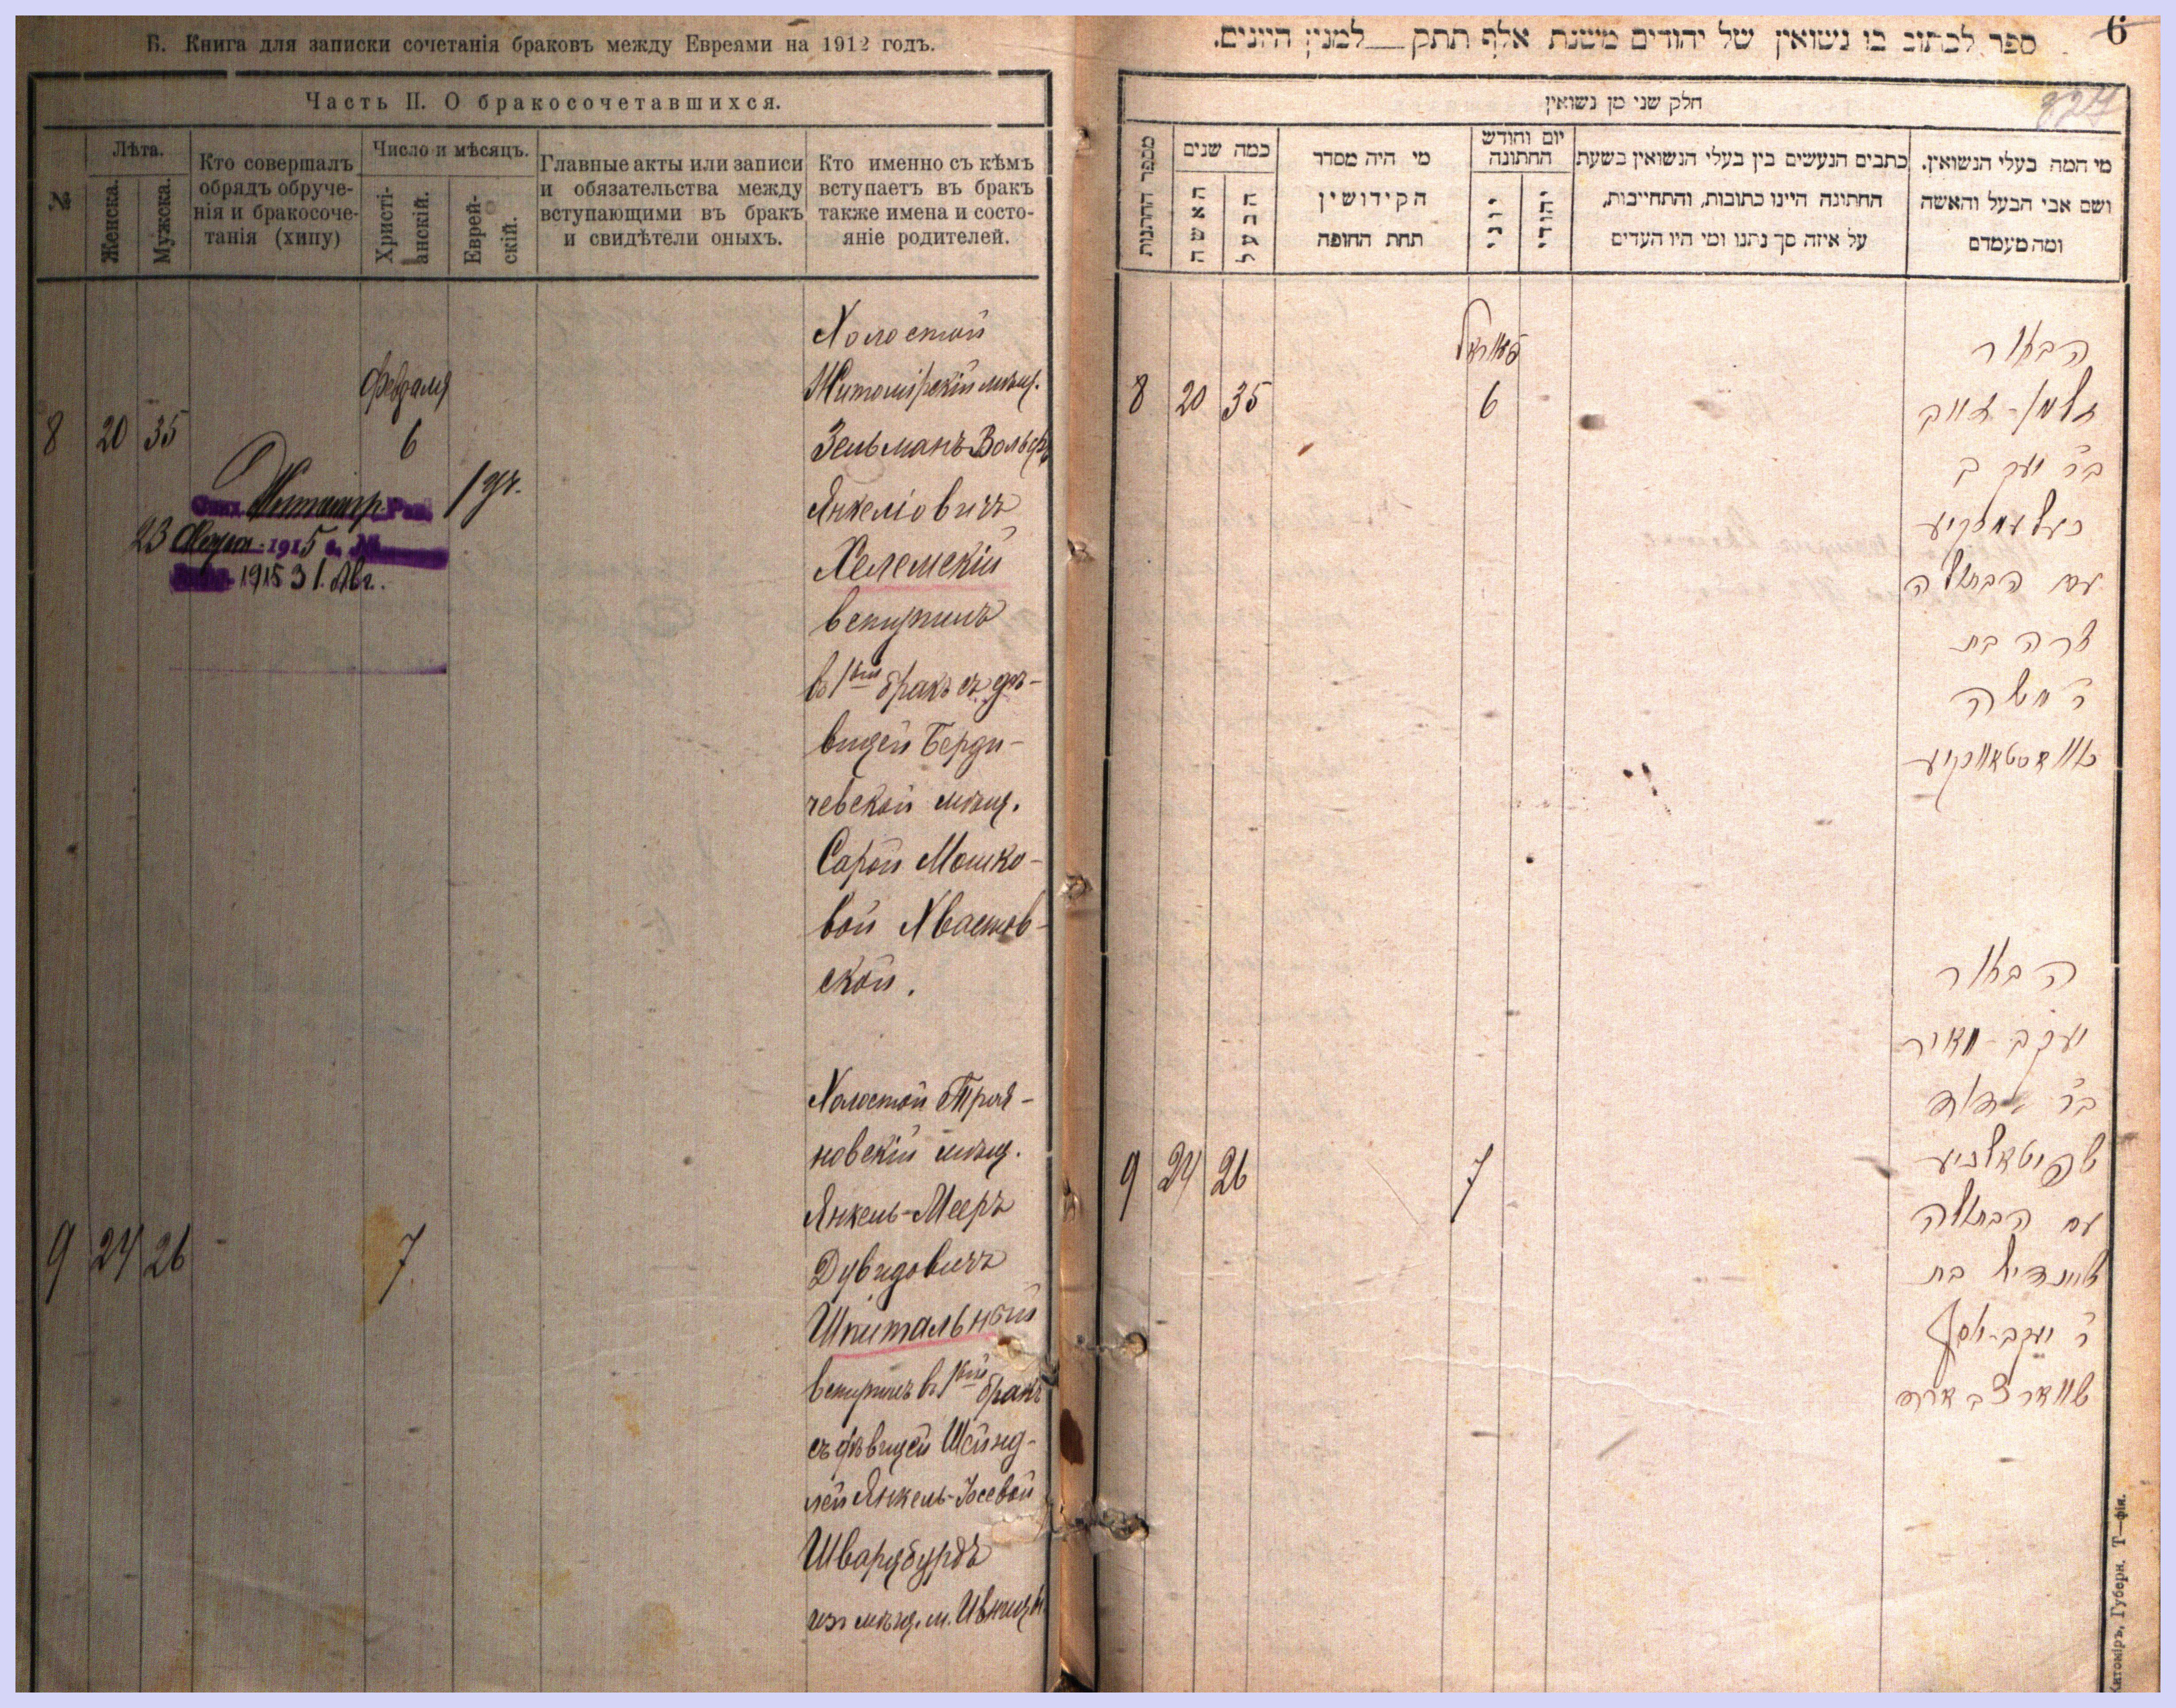 Б. Книга для записки сочетанія браковъ между Евреями на 1912 годъ.
Часть II. О бракосочетавшихся.
№
Лѣта.
Женска.
Мужска.
Кто совершалъ
обрядъ обруче-
нія и бракосоче-
танія (хипу)
Число и мѣсяцъ.
Христі-
анскій.
Еврей-
скій.
Главные акты или записи
и обязательства между
вступающими въ бракъ
и свидѣтели оныхъ.
Кто именно съ кѣмъ
вступаетъ въ бракъ
также имена и состо-
яніе родителей.
8 20 35
Февраля
6
23 1915
1915 31. Авг.
Холостой
Житомірскій мѣщ.
Зельманъ-Вольфъ
Янкеліовичъ
Хелемскій
вступилъ
въ 1вый бракъ съ дѣ-
вицей Берди-
чевской мѣщ.
Сарой Мошко-
вой Хвастов-
ской.
9 24 26
7
Холостой Троя-
новскій мѣщ.
Янкель-Мееръ
Дувидовичъ
Шпитальный
вступилъ въ 1вый бракъ
съ дѣвицей Шейнд-
лей Янкель-Іосевой
Шварцбурдъ
изъ мѣщ. м. Ивницы
ספר לכתוב בו נשואין של יהודים משנת אלף תתק — למנין היונים.
6
824
חלק שני מן נשואין
מספר החתנות
כמה שנים
האשה
הבעל
מי היה מסדר
הקידושין
תחת החופה
יום וחודש
החתונה
יוני
יהודי
כתבים הנעשים בין בעלי הנשואין בשעת
החתונה היינו כתובות, והתחייבות,
על איזה סך נתנו ומי היו העדים
מי המה בעלי הנשואין.
ושם אבי הבעל והאשה
ומה מעמדם
8 20 35
6
הבחור
זלמן-וואלף
בר יעקב
כעלעמסקיע
עם הבתולה
שרה בת
ר משה
9 24 26
7
הבחור
יעקב-מאיר
בר דוד
שפיטאלניע
עם הבתולה
שיינדיל בת
ר יעקב-יוסף
שווארצבארד
Житоміръ, Губерн. Т—фія.